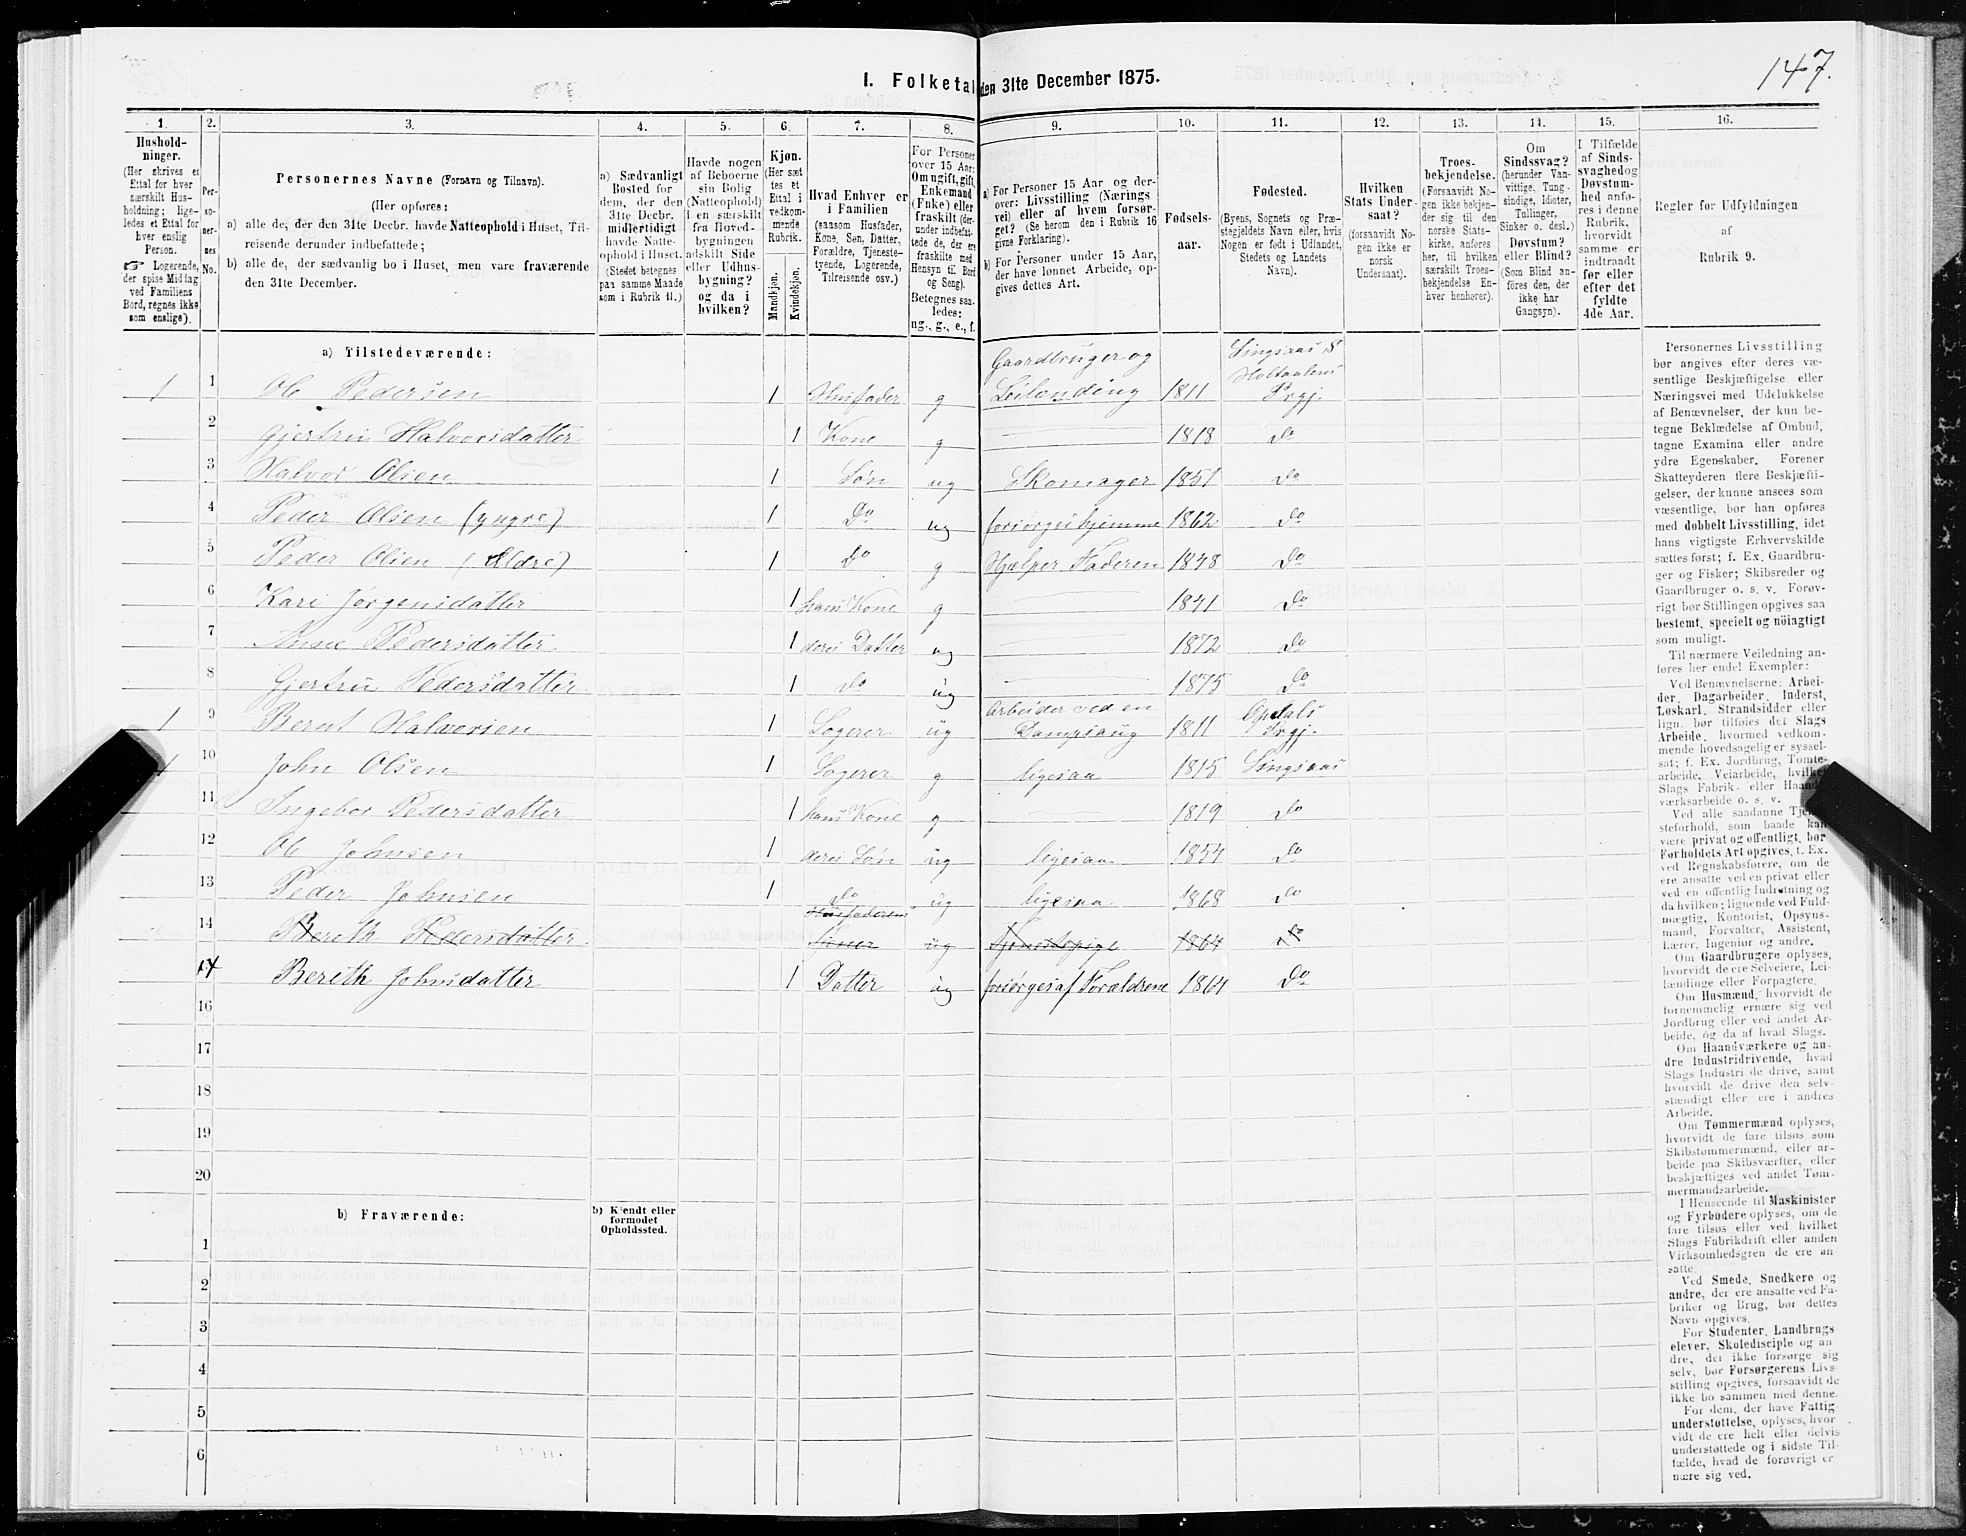 147.
I. Folketal den 31te December 1875.
1. 2. 3. 4. 5. 6. 7. 8. 9. 10. 11. 12. 13. 14. 15. 16.
Hushold-
ninger.
(Her skrives et
Ettal for hver
særskilt Hus-
holdning; lige-
ledes et Ettal for
hver enslig
Person.
☞ Logerende,
der spise Middag
ved Familiens
Bord, regnes ikke
som enslige).
Per-
so-
ner-
nes
No.
Personernes Navne (Fornavn og Tilnavn).
(Her opføres:
a) alle de, der den 31te Decbr. havde Natteophold i Huset, Til-
reisende derunder indbefattede;
b) alle de, der sædvanlig bo i Huset, men vare fraværende
den 31te December.
a) Sædvanligt
Bosted for
dem, der den
31te Decbr.
midlertidigt
havde Natte-
ophold i Huset.
(Stedet betegnes
paa samme Maade
som i Rubrik 11.)
Havde nogen
af Beboerne
sin Bolig
(Natteophold)
i en særskilt
fra Hoved-
bygningen
adskilt Side
eller Udhus-
bygning?
og da i
hvilken?
Kjøn.
(Her sæt
tes et
Ettal i
vedkom-
mende
Rubrik.
Mandkjøn.
Kvindekjøn.
Hvad Enhver er
i Familien
(saasom Husfader,
Kone, Søn, Datter,
Forældre, Tjeneste-
tyende, Logerende,
Tilreisende osv.)
For Personer
over 15 Aar:
Om ugift, gift,
Enkemand
(Enke) eller
fraskilt (der-
under indbefat-
tede de, der ere
fraskilte med
Hensyn til Bord
og Seng).
Betegnes saa-
ledes:
ug., g., e., f.
a) For Personer 15 Aar og der-
over: Livsstilling (Nærings
vei) eller af hvem forsør-
get? (Se herom den i Rubrik 16
givne Forklaring).
b) For Personer under 15 Aar,
der have lønnet Arbeide, op-
gives dettes Art.
Fødsels-
aar.
Fødested.
(Byens, Sognets og Præ-
stegjeldets Navn eller, hvis
Nogen er født i Udlandet,
Stedets og Landets
Navn).
Hvilken
Stats Under-
saat?
(forsaavidt No-
gen ikke er
norsk
Undersaat).
Troes-
bekjendelse.
(Forsaavidt No-
gen ikke bekjen-
der sig til den
norske Stats-
kirke, anføres
her, til hvilken
særskilt Troes-
bekjendelse En-
hver henhører).
Om
Sindssvag?
(herunder Van-
vittige, Tung-
sindige, Idioter,
Tullinger,
Sinker o. desl.)
Døvstum?
eller Blind?
(Som Blind an-
føres den, der
ikke har
Gangsyn).
I Tilfælde
af Sinds-
svaghed og
Døvstum-
hed anfø-
res i denne
Rubrik,
hvorvidt
samme er
indtraadt
før eller
efter det
fyldte
4de Aar.
Regler for Udfyldningen
af
Rubrik 9.
a) Tilstedeværende:
1 1 Ole Pedersen 1 Husfader g Gaardbruger og Leilending 1811 Singsaas S Holtaalens Prgj.
2 Gjertru Halvorsdatter 1 Kone g 1818 Do
3 Halvor Olsen 1 Søn ug Skomager 1851 Do
4 Peder Olsen (yngre) 1 Do ug forsørges hjemme 1862 Do
5 Peder Olsen (Eldre) 1 Do g Hjælper Faderen 1848 Do
6 Kari Jørgensdatter 1 hans Kone g 1841 Do
7 Anne Pedersdatter 1 deres Datter ug 1872 Do
8 Gjertru Pedersdatter 1 Do ug 1875 Do
1 9 Bernt Halvorsen 1 Logerer ug Arbeider ved en Dampsaug 1811 Opdals Prgj.
1 10 John Olsen 1 Logerer g ligesaa 1815 Singsaas
11 Ingebor Pedersdatter 1 hans Kone g 1819 Do
12 Ole Johnsen 1 deres Søn ug ligesaa 1854 Do
13 Peder Johnsen 1 Do ug ligesaa 1868 Do
14 Bereth Pedersdatter Husfaderens tjener ug Tjenestepige 1864 Do
14 Bereth Johnsdatter 1 Datter ug forsørges af Forældrene 1864 Do
16
17
18
19
20
b) Fraværende:
b) Kjendt eller
formodet
Opholdssted.
1
2
3
4
5
6
Personernes Livsstilling
bør angives efter deres væ-
sentlige Beskjæftigelse eller
Næringsvei med Udelukkelse
af Benævnelser, der kun be-
tegne Beklædelse af Ombud,
tagne Examina eller andre
ydre Egenskaber. Forener
Skatteyderen flere Beskjæfti-
gelser, der kunne ansees som
væsentlige, bør han opføres
med dobbelt Livsstilling, idet
hans vigtigste Erhvervskilde
sættes først; f. Ex. Gaardbru-
ger og Fisker; Skibsreder og
Gaardbruger o. s. v. Forøv-
rigt bør Stillingen opgives saa
bestemt, specielt og nöiagtigt
som muligt.
Til nærmere Veiledning an-
føres her endel Exempler:
Ved Benævnelserne: Arbei-
der, Dagarbeider, Inderst,
Løskarl, Strandsidder eller
lign. bør tilføies det Slags
Arbeide, hvormed vedkom-
mende hovedsagelig er syssel-
sat; f. Ex. Jordbrug, Tomte-
arbeide, Veiarbeide, hvilket
Slags Fabrik- eller Haand-
værksarbeide o. s. v.
Ved alle saadanne Tjene-
steforhold, som baade kan
være privat og offentligt, bør
Forholdets Art opgives, t. Ex.
ved Regnskabsførere, om de
ere ansatte ved en privat eller
ved en offentlig Indretning og
da hvilken; lignende ved Fuld-
mægtig, Kontorist, Opsyns-
mand, Forvalter, Assistent,
Lærer, Ingeniør og andre.
Om Gaardbrugere oplyses,
hvorvidt de ere Selveiere, Lei-
lændinge eller Forpagtere.
Om Husmænd, hvorvidt de
fornemmelig ernære sig ved
Jordbrug eller ved andet Ar-
beide, og da af hvad Slags.
Om Haandværkere og an-
dre Industridrivende, hvad
Slags Industri de drive, samt
hvorvidt de drive den selv-
stændigt eller ere i andres
Arbeide.
Om Tømmermænd oplyses,
hvorvidt de fare tilsøs som
Skibstømmermænd, eller ar-
beide paa Skibsværfter, eller
beskjæftiges ved andet Tøm-
mermandsarbeide.
I Henseende til Maskinister
og Fyrbødere oplyses, om de
fare tilsøs eller ved hvilket
Slags Fabrikdrift eller anden
Virksomhedsgren de ere an-
satte.
Ved Smede, Snedkere og
andre, der ere ansatte ved Fa-
briker og Brug, bør dettes
Navn opgives.
For Studenter, Landbrugs
elever, Skoledisciple og an-
dre, der ikke forsørge sig
selv, bør Forsørgerens Livs-
stilling opgives, forsaavidt de
ikke bo sammen med denne.
For dem, der have Fattig-
understøttelse, oplyses, hvor
vidt de ere helt eller delvis
understøttede og i sidste Til-
fælde, hvad de forøvrigt er
nære sig ved.